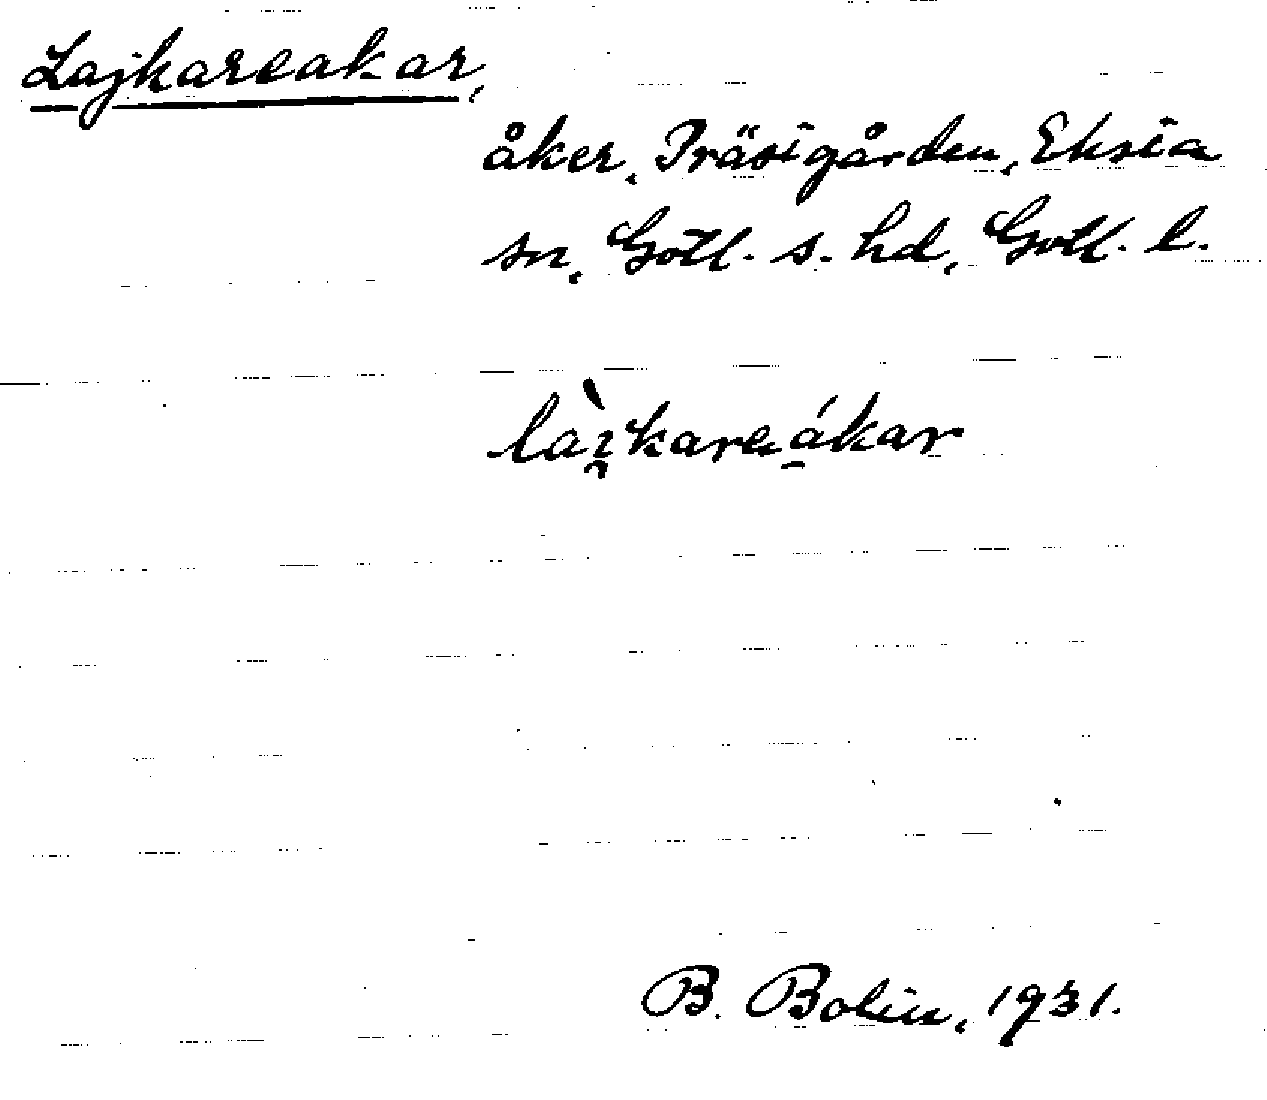 Lajkareakar,
åker, Prästgården, Eksta
sn, Gotl. s. hd, Gotl. l.
lài̯kareákar
B. Bolin, 1931.